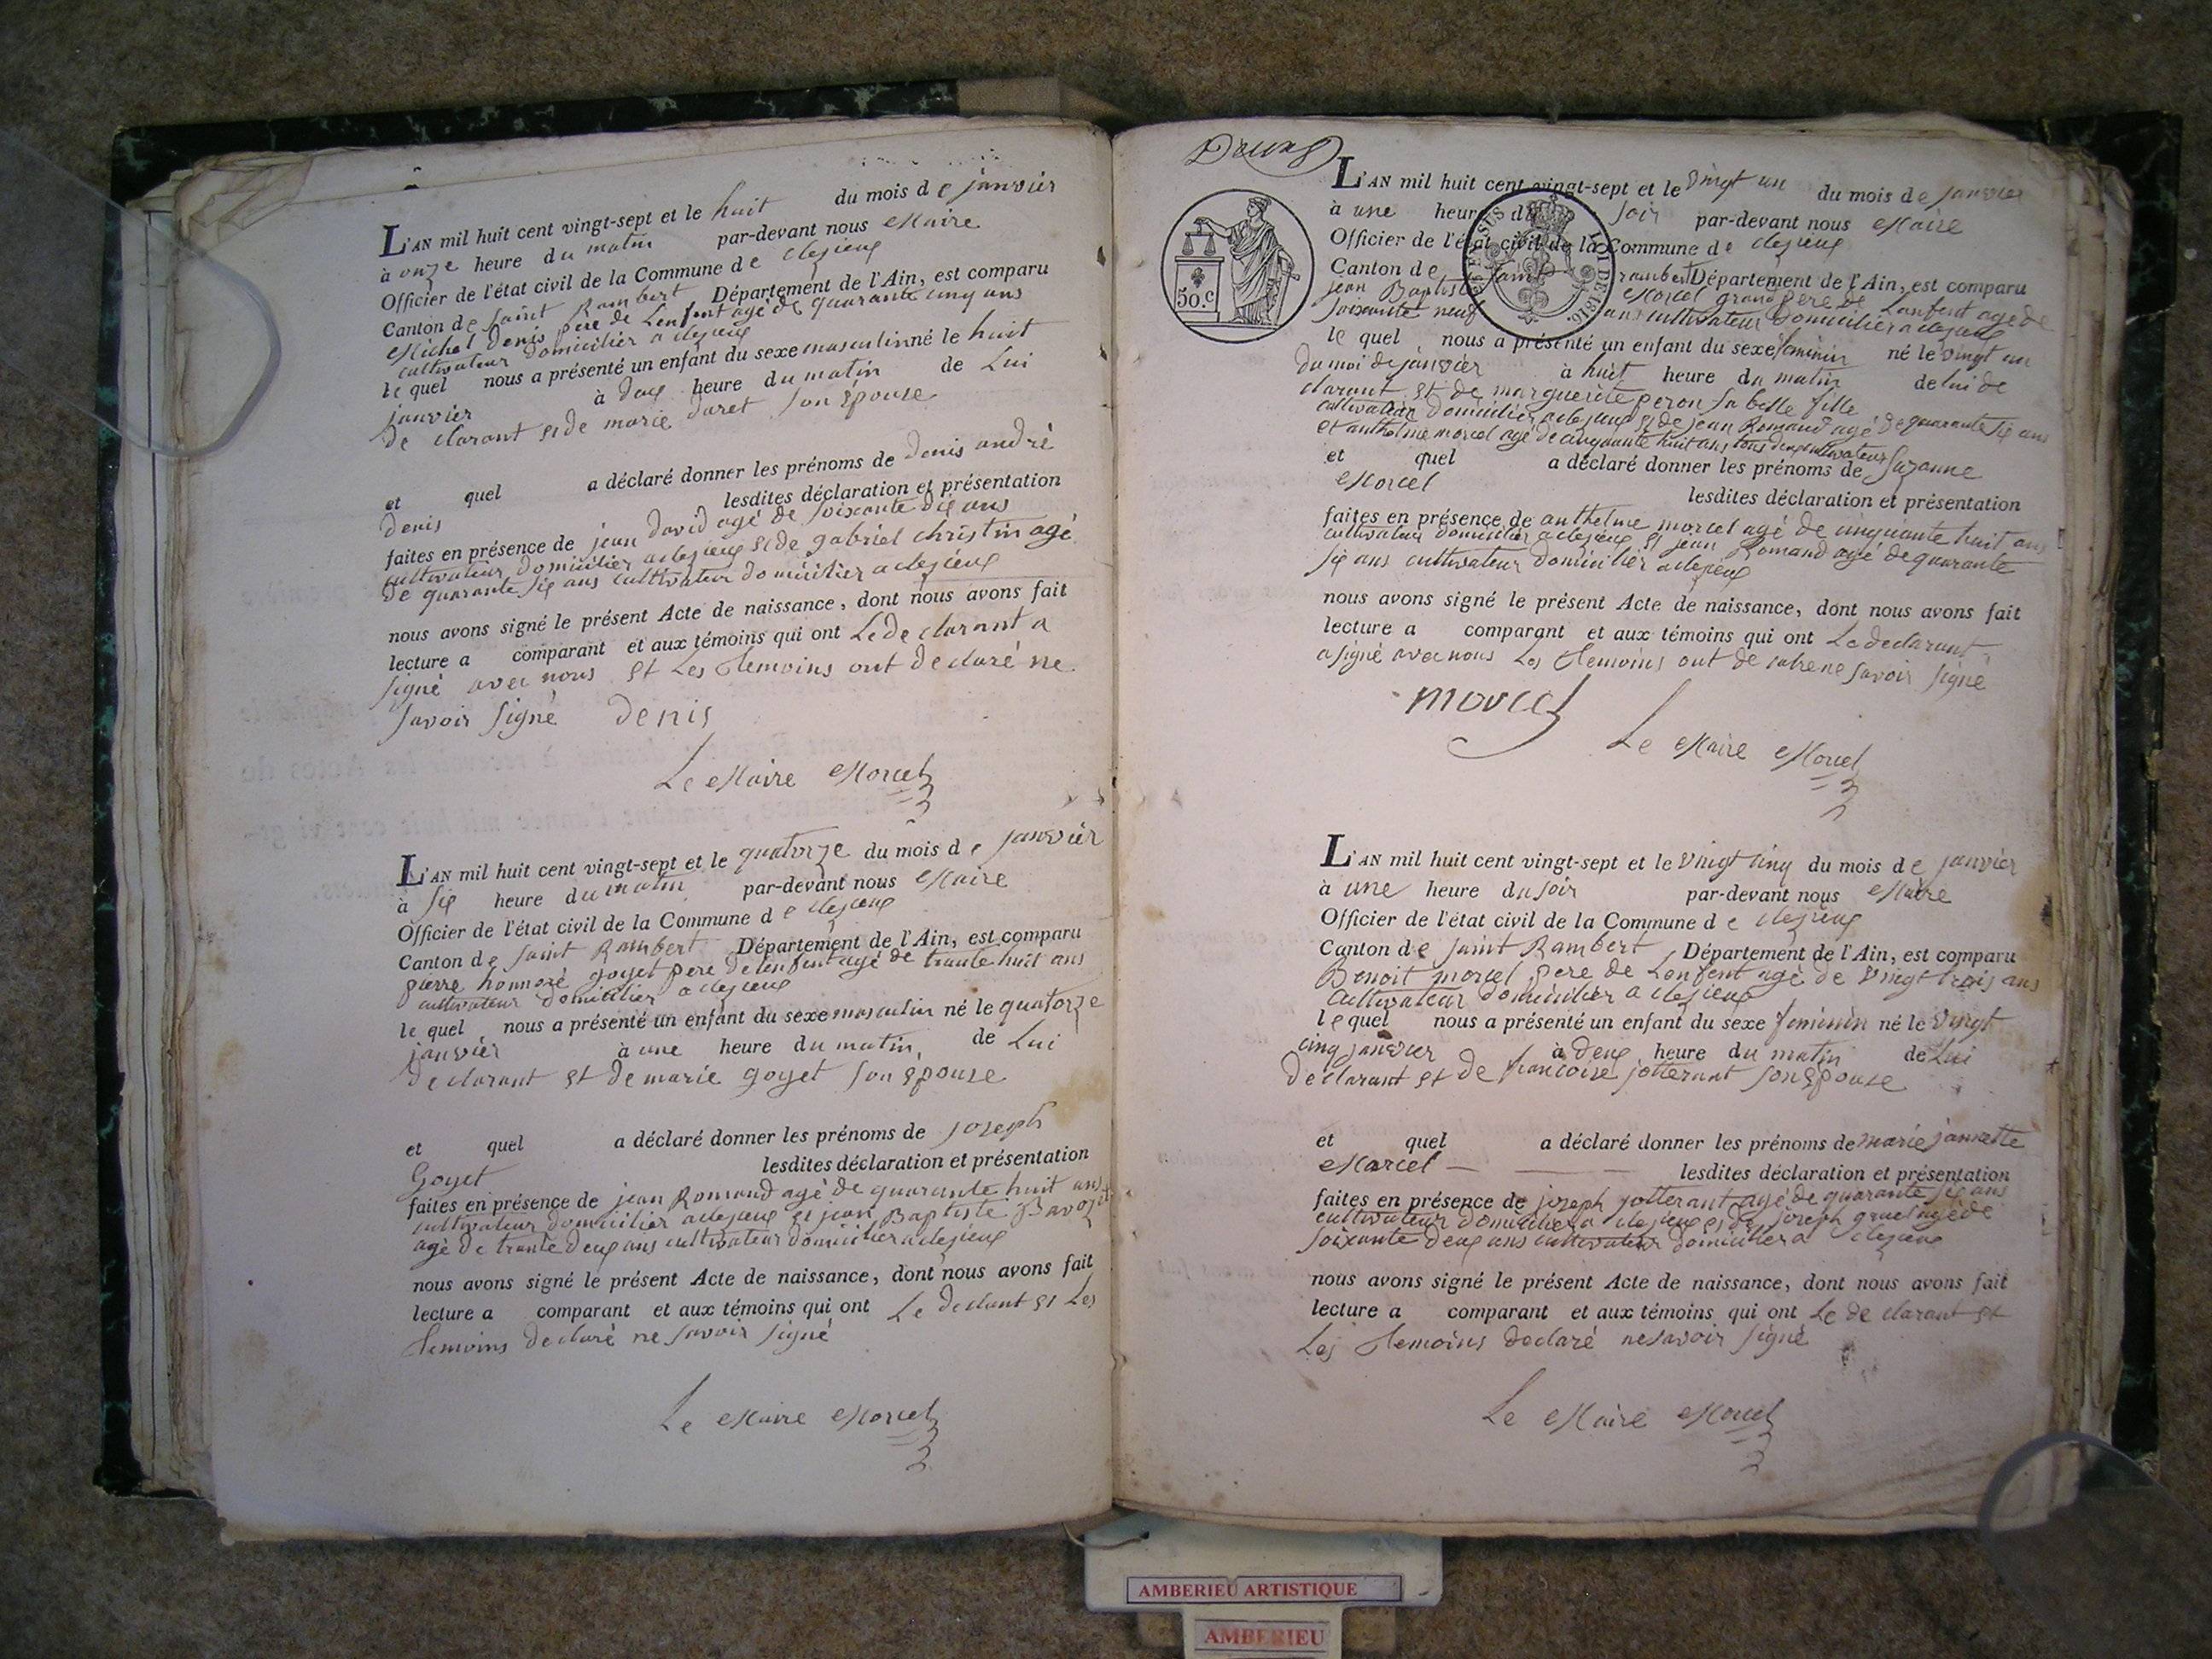 L'AN mil huit cent vingt-sept et le huit du mois de janvier
à onze heure du matin par-devant nous Maire
Officier de l'état civil de la Commune de clezieux
Canton de saint Rambert Département de l'Ain, est comparu
Michel denis pere de Lenfent agé de quarante cinq ans
cultivateur domicilier a clezieux
le quel nous a présenté un enfant du sexe masculin né le huit
janvier à deux heure du matin de Lui
de clarant et de marie daret son Epouse
et quel a déclaré donner les prénoms de denis andré
denis lesdites déclaration et présentation
faites en présence de jean david agé de soixante dix ans
cultivateur domicilier a clezieux et de gabriel christin agé
de quarante six ans cultivateur domicilier a clezieux
nous avons signé le présent Acte de naissance, dont nous avons fait
lecture a comparant et aux témoins qui ont Le de clarant a
signé avec nous et Les temoins ont de claré ne
savoir signé denis
Le Maire Morcel
L'AN mil huit cent vingt-sept et le quatorze du mois de janvier
à six heure du matin par-devant nous Maire
Officier de l'état civil de la Commune de clezieux
Canton de saint Rambert Département de l'Ain, est comparu
pierre honnoré goyet pere de lenfent agé de trante huit ans
cultivateur domicilier a clezieux
le quel nous a présenté un enfant du sexe masculin né le quatorze
janvier à une heure du matin, de Lui
de clarant et de marie goyet son epouse
et quel a déclaré donner les prénoms de joseph
Goyet lesdites déclaration et présentation
faites en présence de jean Romand agé de quarante huit ans
cultivateur domicilier a clezieux et jean Baptiste
agé de trante deux ans cultivateur domicilier a clezieux
nous avons signé le présent Acte de naissance, dont nous avons fait
lecture a comparant et aux témoins qui ont Le declant et Les
temoins declaré ne savoir signé
Le Maire Morcel
L'AN mil huit cent vingt-sept et le vingt un du mois de janvier
à une heure du soir par-devant nous Maire
Officier de l'état civil de la Commune de clezieux
Canton de saint rambert Département de l'Ain, est comparu
jean Baptiste Morcel grand pere de Lanfent age de
soixante neuf ans cultivateur domicilier a clezieux
le quel nous a présenté un enfant du sexe feminin né le vingt un
du moi de janvier à huit heure du matin de lui de
clarant et de marguerite peron sa belle fille
cultivateur domicilier a clezieux et de jean Romand agé de quarante six ans
et anthelme morcel agé de cinquante huit ans tous deux cultivateur
et quel a déclaré donner les prénoms de suzanne
Morcel lesdites déclaration et présentation
faites en présence de anthelme morcel agé de cinquante huit ans
cultivateur domicilier a clezieux et jean Romand agé de quarante
six ans cultivateur domicilier a clezieux
nous avons signé le présent Acte de naissance, dont nous avons fait
lecture a comparant et aux témoins qui ont Le declarant
a signé avec nous Les temoins ont de clare ne savoir signé
morcel
Le Maire Morcel
50.c
LOI DE 1816.
L'AN mil huit cent vingt-sept et le vingt cinq du mois de janvier
à une heure du soir par-devant nous Maire
Officier de l'état civil de la Commune de clezieux
Canton de saint Rambert Département de l'Ain, est comparu
Benoit morcel pere de Lenfent agé de vingt trois ans
cultivateur domicilier a clezieux
le quel nous a présenté un enfant du sexe feminin né le vingt
cinq janvier à deux heure du matin de Lui
declarant et de francoise jotterant son Epouse
et quel a déclaré donner les prénoms de marie jannette
Marcel lesdites déclaration et présentation
faites en présence de joseph jotterant agé de quarante six ans
cultivateur domicilier a clezieux et de joseph gruel agé de
soixante deux ans cultivateur domicilier a clezieux
nous avons signé le présent Acte de naissance, dont nous avons fait
lecture a comparant et aux témoins qui ont Le de clarant et
Les temoins declaré ne savoir signé
Le Maire Morcel
AMBERIEU ARTISTIQUE
AMBERIEU